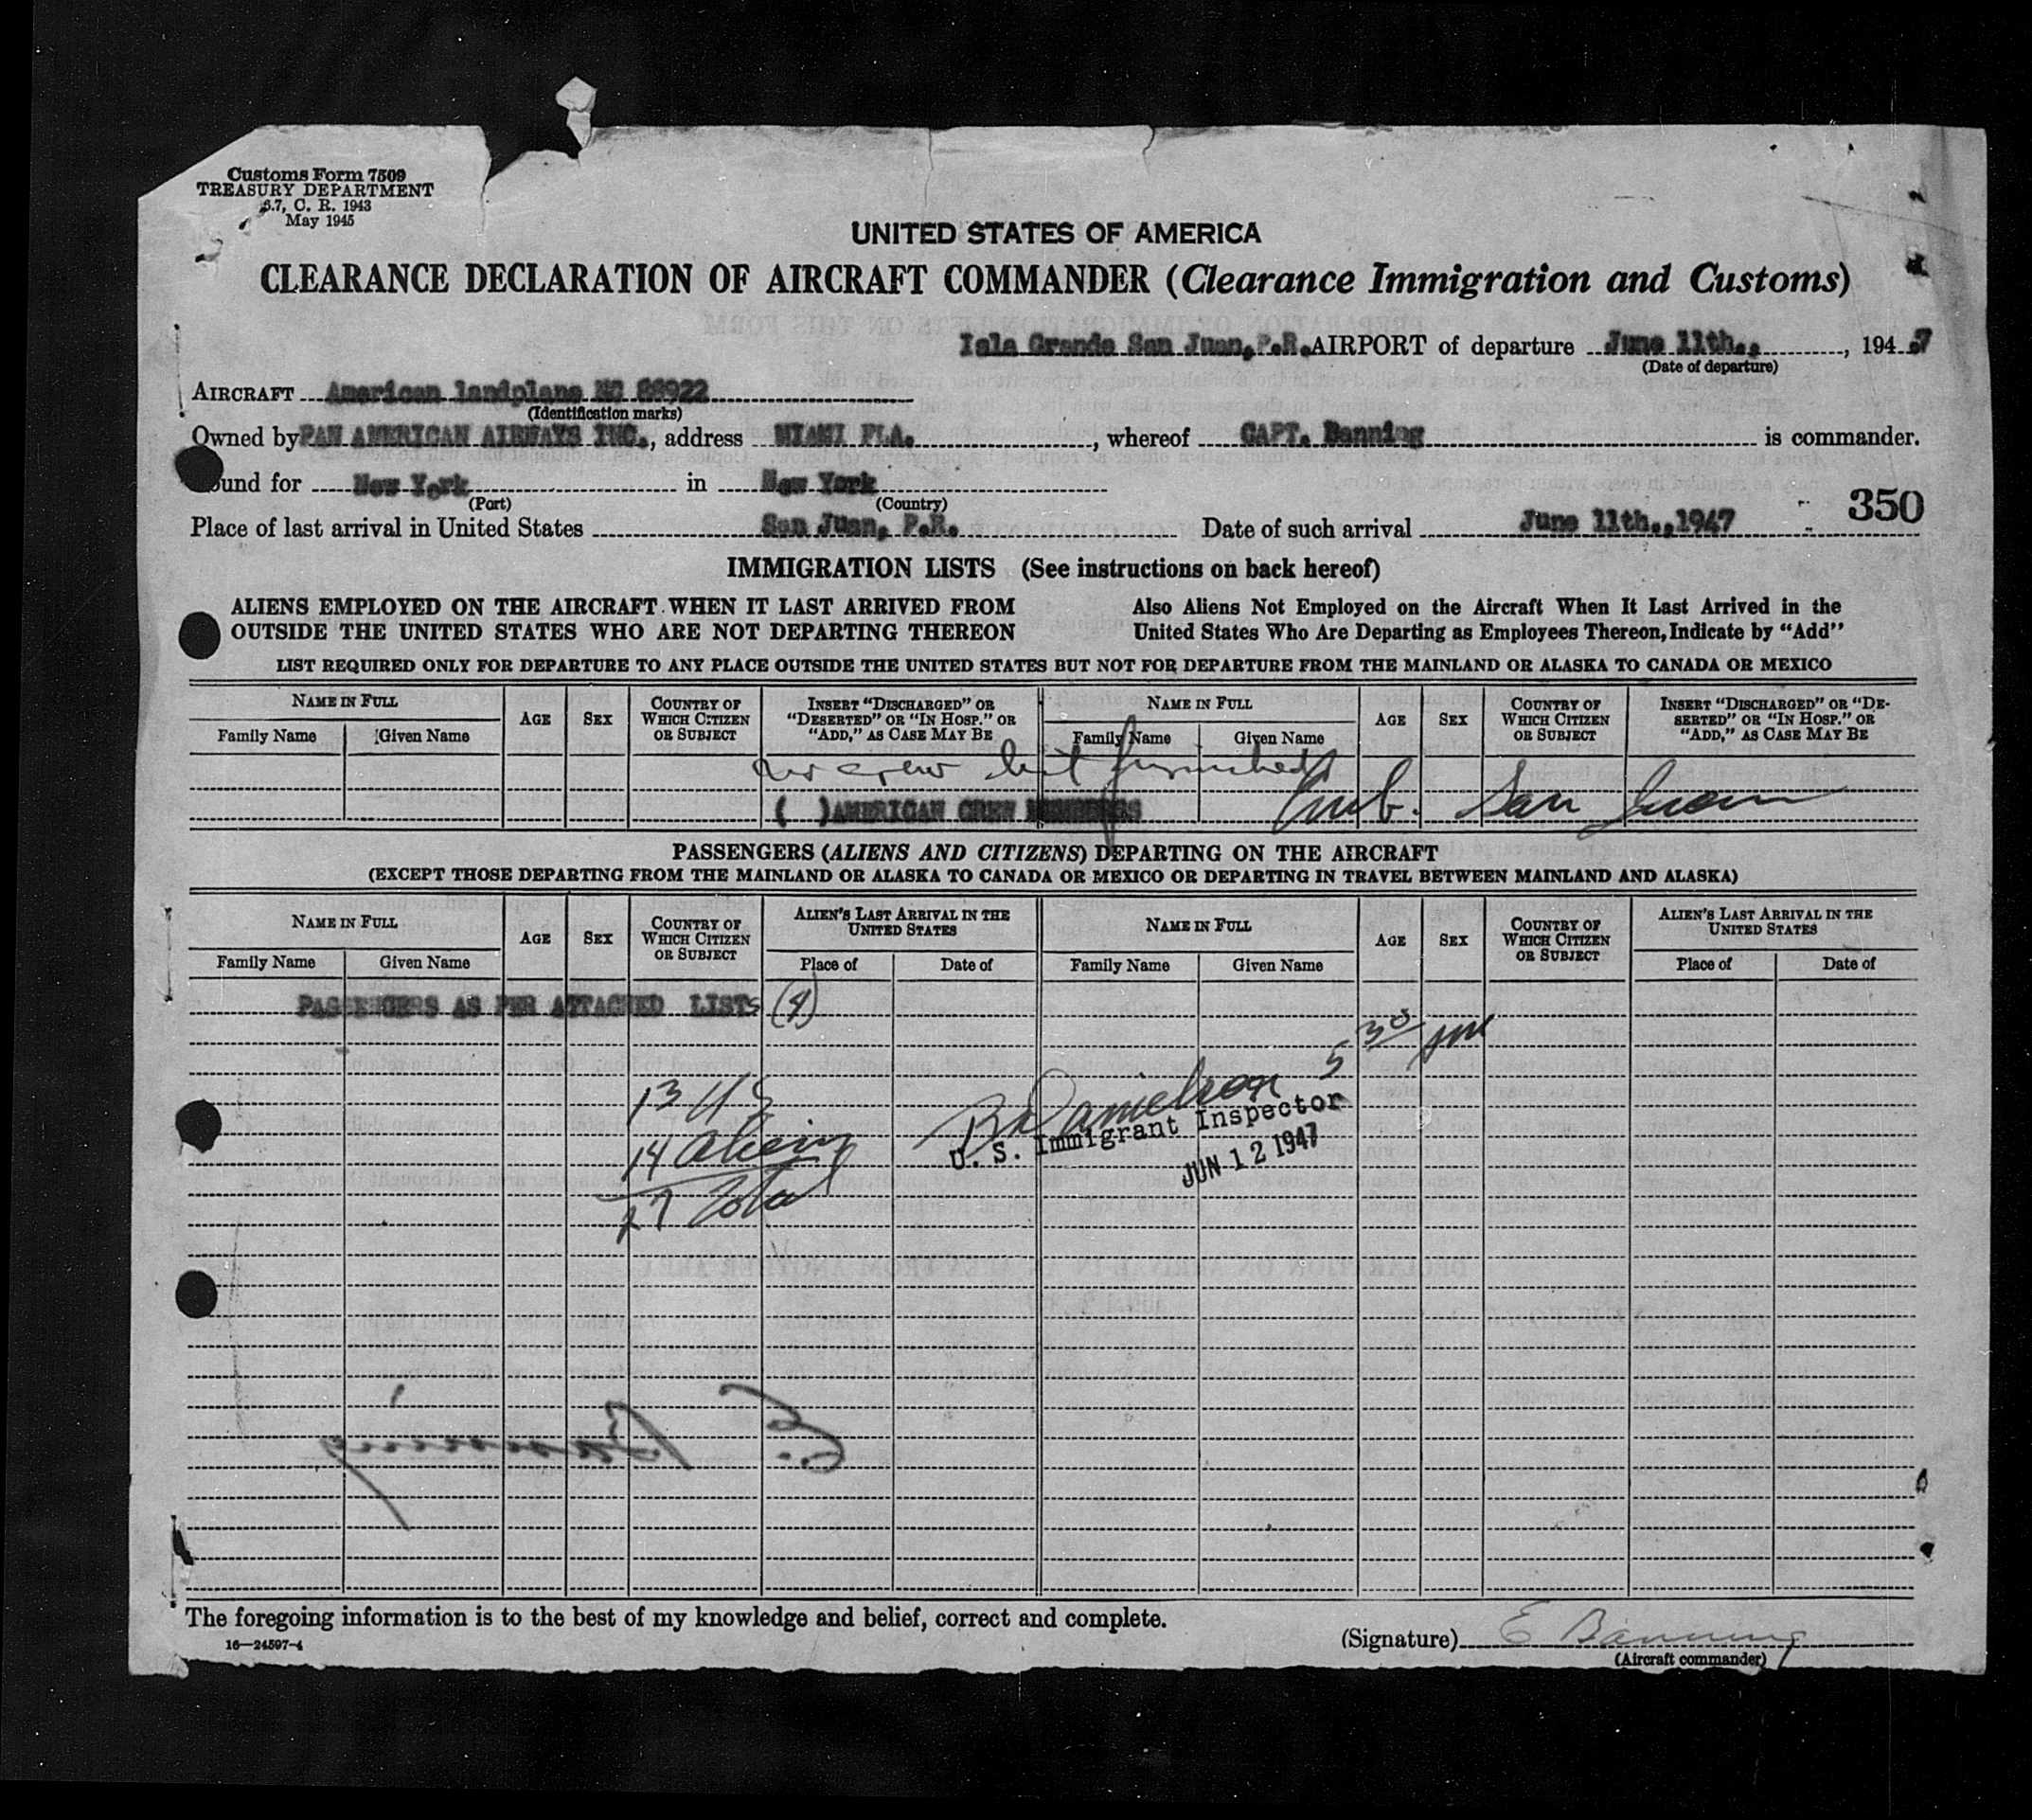 Customs Form 7509
TREASURY DEPARTMENT
6.7, C. R. 1943
May 1945
UNITED STATES OF AMERICA
CLEARANCE DECLARATION OF AIRCRAFT COMMANDER (Clearance Immigration and Customs)
Isla Grande San Juan, P.R. AIRPORT of departure June 11th., , 1947
(Date of departure)
AIRCRAFT American landplane NC 88922
(Identification marks)
Owned by PAN AMERICAN AIRWAYS INC., address MIAMI FLA. , whereof CAPT. Banning is commander.
ound for New York in New York
(Port) (Country)
350
Place of last arrival in United States San Juan, P.R. Date of such arrival June 11th.,1947
IMMIGRATION LISTS (See instructions on back hereof)
ALIENS EMPLOYED ON THE AIRCRAFT WHEN IT LAST ARRIVED FROM OUTSIDE THE UNITED STATES WHO ARE NOT DEPARTING THEREON
Also Aliens Not Employed on the Aircraft When It Last Arrived in the United States Who Are Departing as Employees Thereon, Indicate by "Add"
LIST REQUIRED ONLY FOR DEPARTURE TO ANY PLACE OUTSIDE THE UNITED STATES BUT NOT FOR DEPARTURE FROM THE MAINLAND OR ALASKA TO CANADA OR MEXICO
NAME IN FULL AGE SEX COUNTRY OF WHICH CITIZEN OR SUBJECT INSERT "DISCHARGED" OR "DESERTED" OR "IN HOSP." OR "ADD," AS CASE MAY BE NAME IN FULL AGE SEX COUNTRY OF WHICH CITIZEN OR SUBJECT INSERT "DISCHARGED" OR "DESERTED" OR "IN HOSP." OR "ADD," AS CASE MAY BE
Family Name Given Name Family Name Given Name
crew list furnished
( )AMERICAN CREW MEMBERS Emb. San Juan
PASSENGERS (ALIENS AND CITIZENS) DEPARTING ON THE AIRCRAFT
(EXCEPT THOSE DEPARTING FROM THE MAINLAND OR ALASKA TO CANADA OR MEXICO OR DEPARTING IN TRAVEL BETWEEN MAINLAND AND ALASKA)
NAME IN FULL AGE SEX COUNTRY OF WHICH CITIZEN OR SUBJECT ALIEN'S LAST ARRIVAL IN THE UNITED STATES NAME IN FULL AGE SEX COUNTRY OF WHICH CITIZEN OR SUBJECT ALIEN'S LAST ARRIVAL IN THE UNITED STATES
Family Name Given Name Place of Date of Family Name Given Name Place of Date of
PASSENGERS AS PER ATTACHED LISTS (4)
5 30 pm
13 US
Danielson
U. S. Immigrant Inspector
14 alien
JUN 12 1947
27 Total
E. Banning
The foregoing information is to the best of my knowledge and belief, correct and complete.
16—24597-4
(Signature) E Banning
(Aircraft commander)